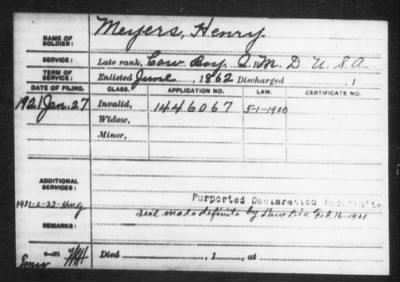 NAME OF SOLDIER: Meyers, Henry
SERVICE: Late rank, Cow Boy Q. M. D U. S. A
TERM OF SERVICE: Enlisted June, 1862 Discharged , 1
DATE OF FILING. CLASS. APPLICATION NO. LAW. CERTIFICATE NO.
1921 Jan. 27 Invalid, 1446067 5-1-1920
Widow,
Minor,
ADDITIONAL SERVICES:
Purported Declaration
REMARKS: made definite by Law
Died , 1 , at